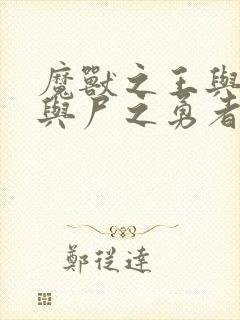 魔獸之王與
與尸之勇者
鄭從達